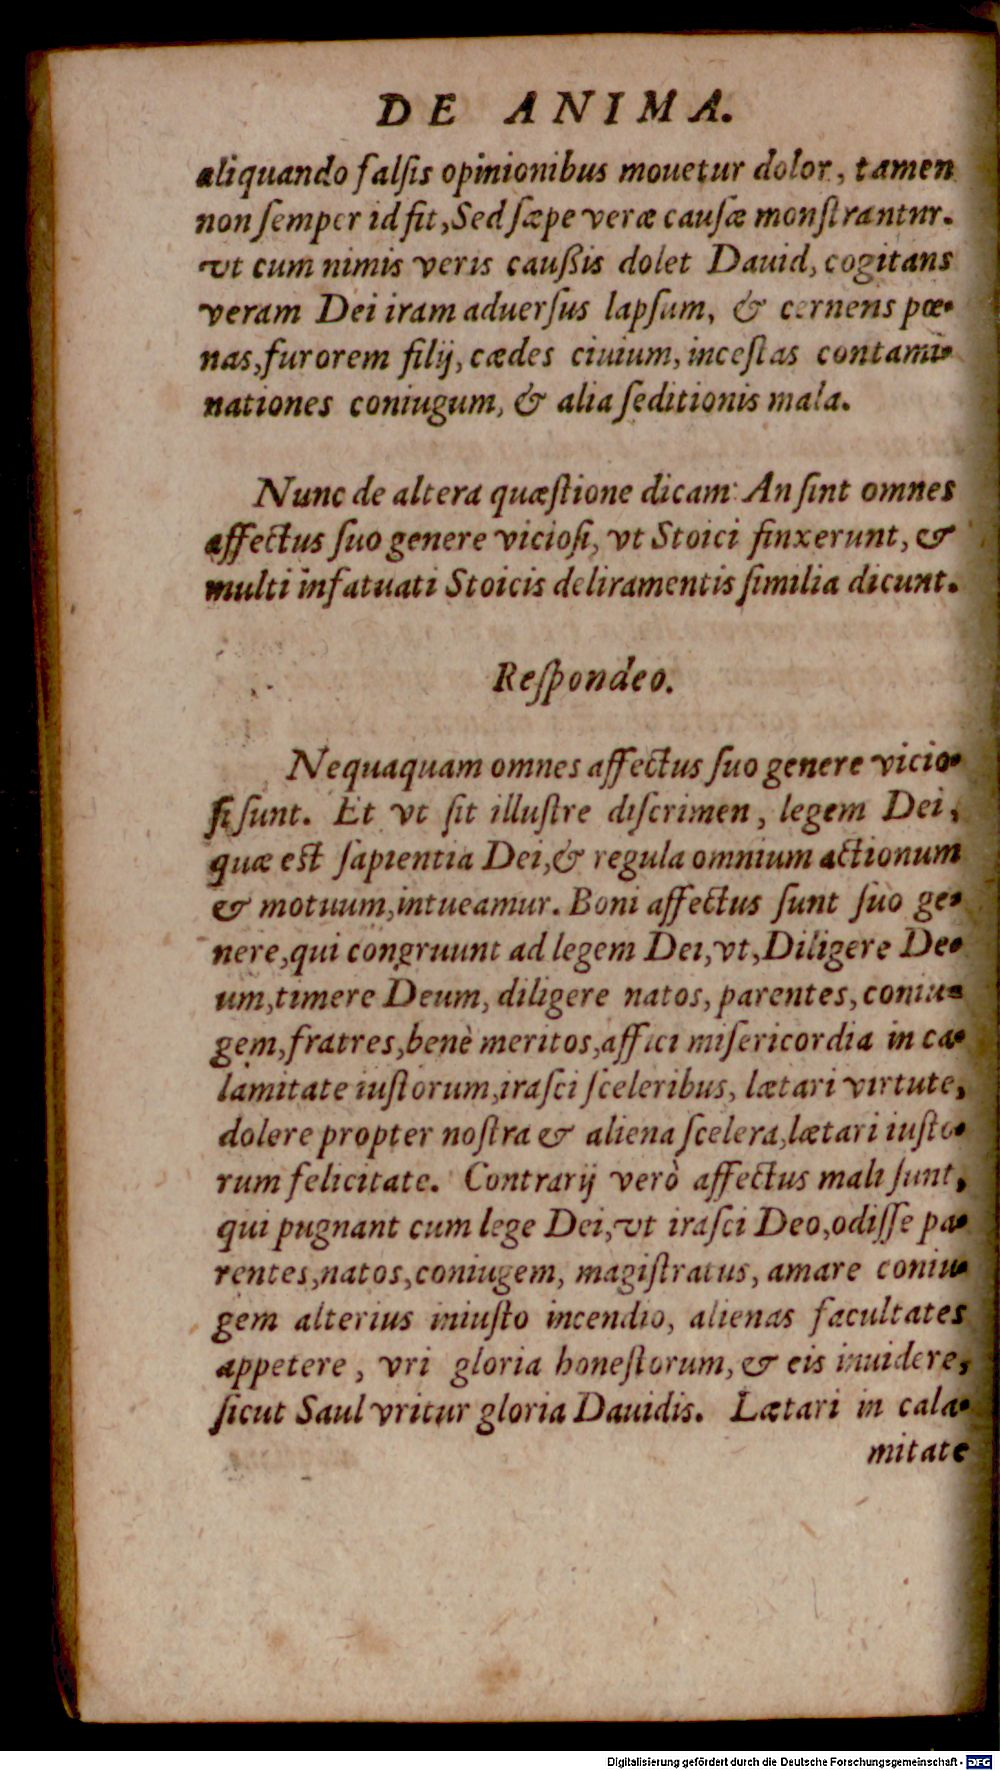 DE ANIMA.
aliquando falſis opinionibus mouetur dolor, tamen
non ſemper id fit, Sed ſæpe veræ cauſæ monſtrantnr.
vt cum nimis veris cauſsis dolet Dauid, cogitans
veram Dei iram aduerſus lapſum, & cernens pœ-
nas, furorem filij, cædes ciuium, inceſtas contami-
nationes coniugum, & alia ſeditionis mala.
Nunc de altera quæſtione dicam: An ſint omnes
affectus ſuo genere vicioſi, vt Stoici finxerunt, &
multi infatuati Stoicis deliramentis ſimilia dicunt.
Reſpondeo.
Nequaquam omnes affectus ſuo genere vicio-
ſi ſunt. Et vt ſit illuſtre diſcrimen, legem Dei,
quæ eſt ſapientia Dei, & regula omnium actionum
& motuum, intueamur. Boni affectus ſunt ſuo ge-
nere, qui congruunt ad legem Dei, vt, Diligere De-
um, timere Deum, diligere natos, parentes, coniu-
gem, fratres, benè meritos, affici miſericordia in ca-
lamitate iuſtorum, iraſci ſceleribus, lætari virtute,
dolere propter noſtra & aliena ſcelera, lætari iuſto-
rum felicitate. Contrarij verò affectus mali ſunt,
qui pugnant cum lege Dei, vt iraſci Deo, odiſſe pa-
rentes, natos, coniugem, magiſtratus, amare coniu-
gem alterius iniuſto incendio, alienas facultates
appetere, vri gloria honeſtorum, & eis inuidere,
ſicut Saul vritur gloria Dauidis. Lætari in cala-
mitate
Digitalisierung gefördert durch die Deutsche Forschungsgemeinschaft - DFG